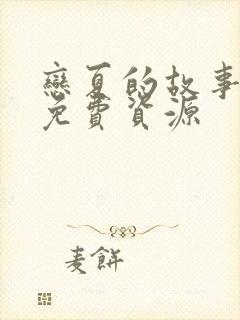 戀夏的故事
免費資源
麦餅